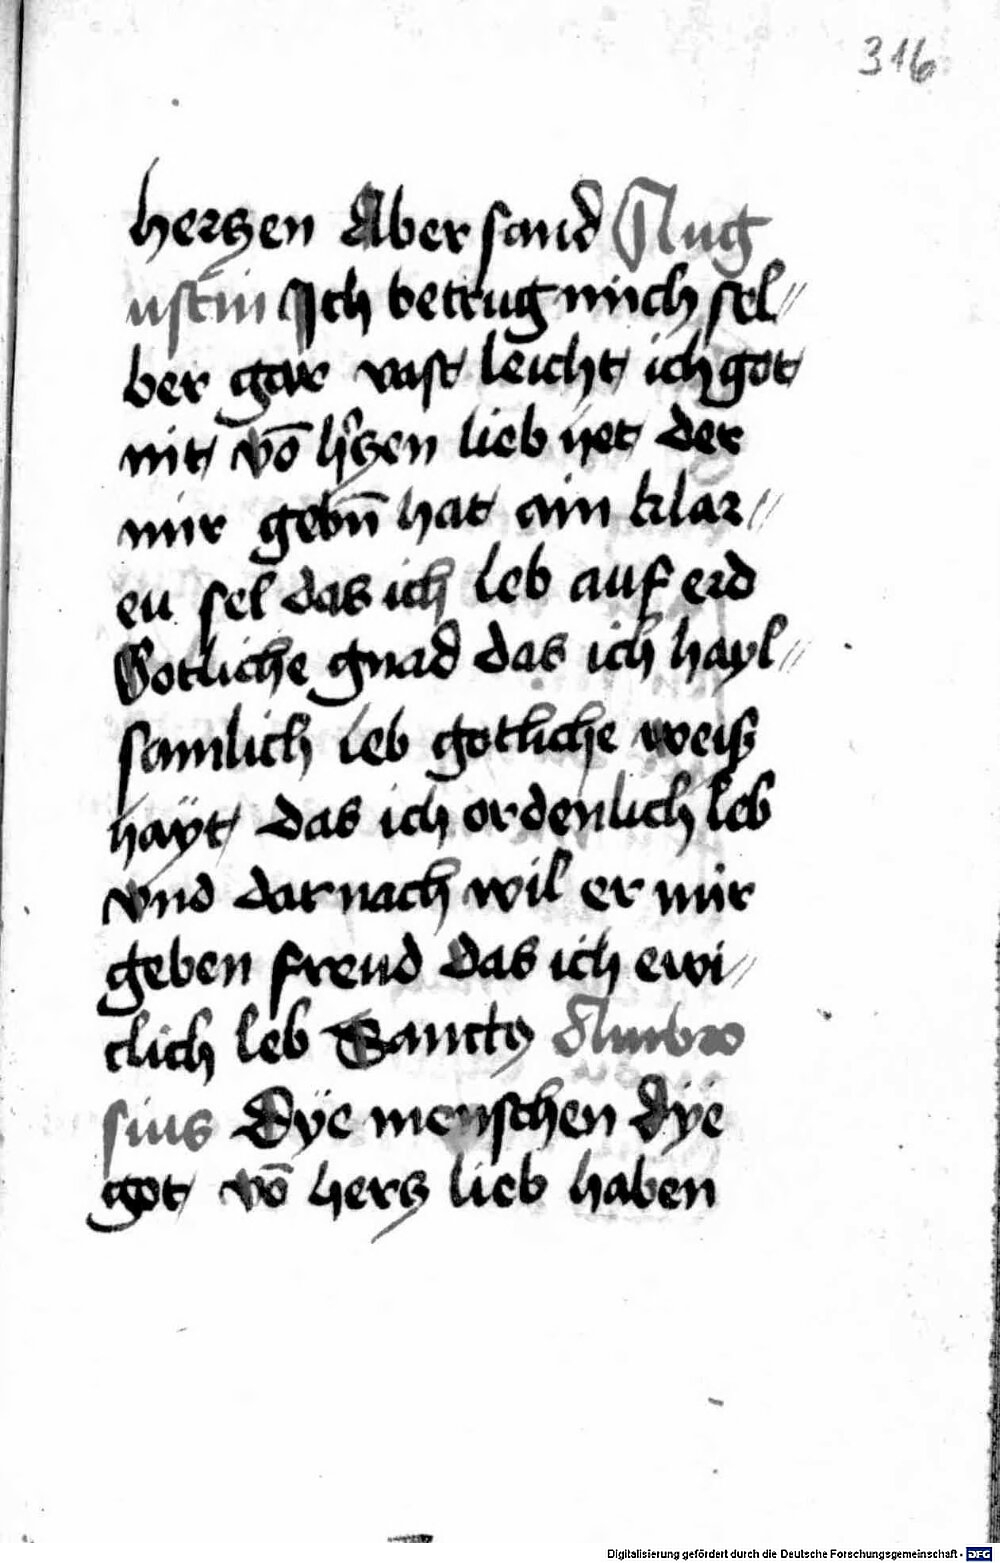 316
herczen Aber sand Aug
ustin Ich betrug mich sel//
ber gar vast leicht ich got
nit vō hʼczen lieb het der
mir gebn̄ hat ain klar//
eu sel das ich leb auf erd
Gotliche gnad das ich hayl//
samlich leb gotliche weiß
hayt das ich ordenlich leb
vnd dar nach wil er mir
geben freud das ich ewi//
clich leb Sanctus Ambro
sius Dÿe menschen dÿe
got vō hercz lieb haben
Digitalisierung gefördert durch die Deutsche Forschungsgemeinschaft - DFG